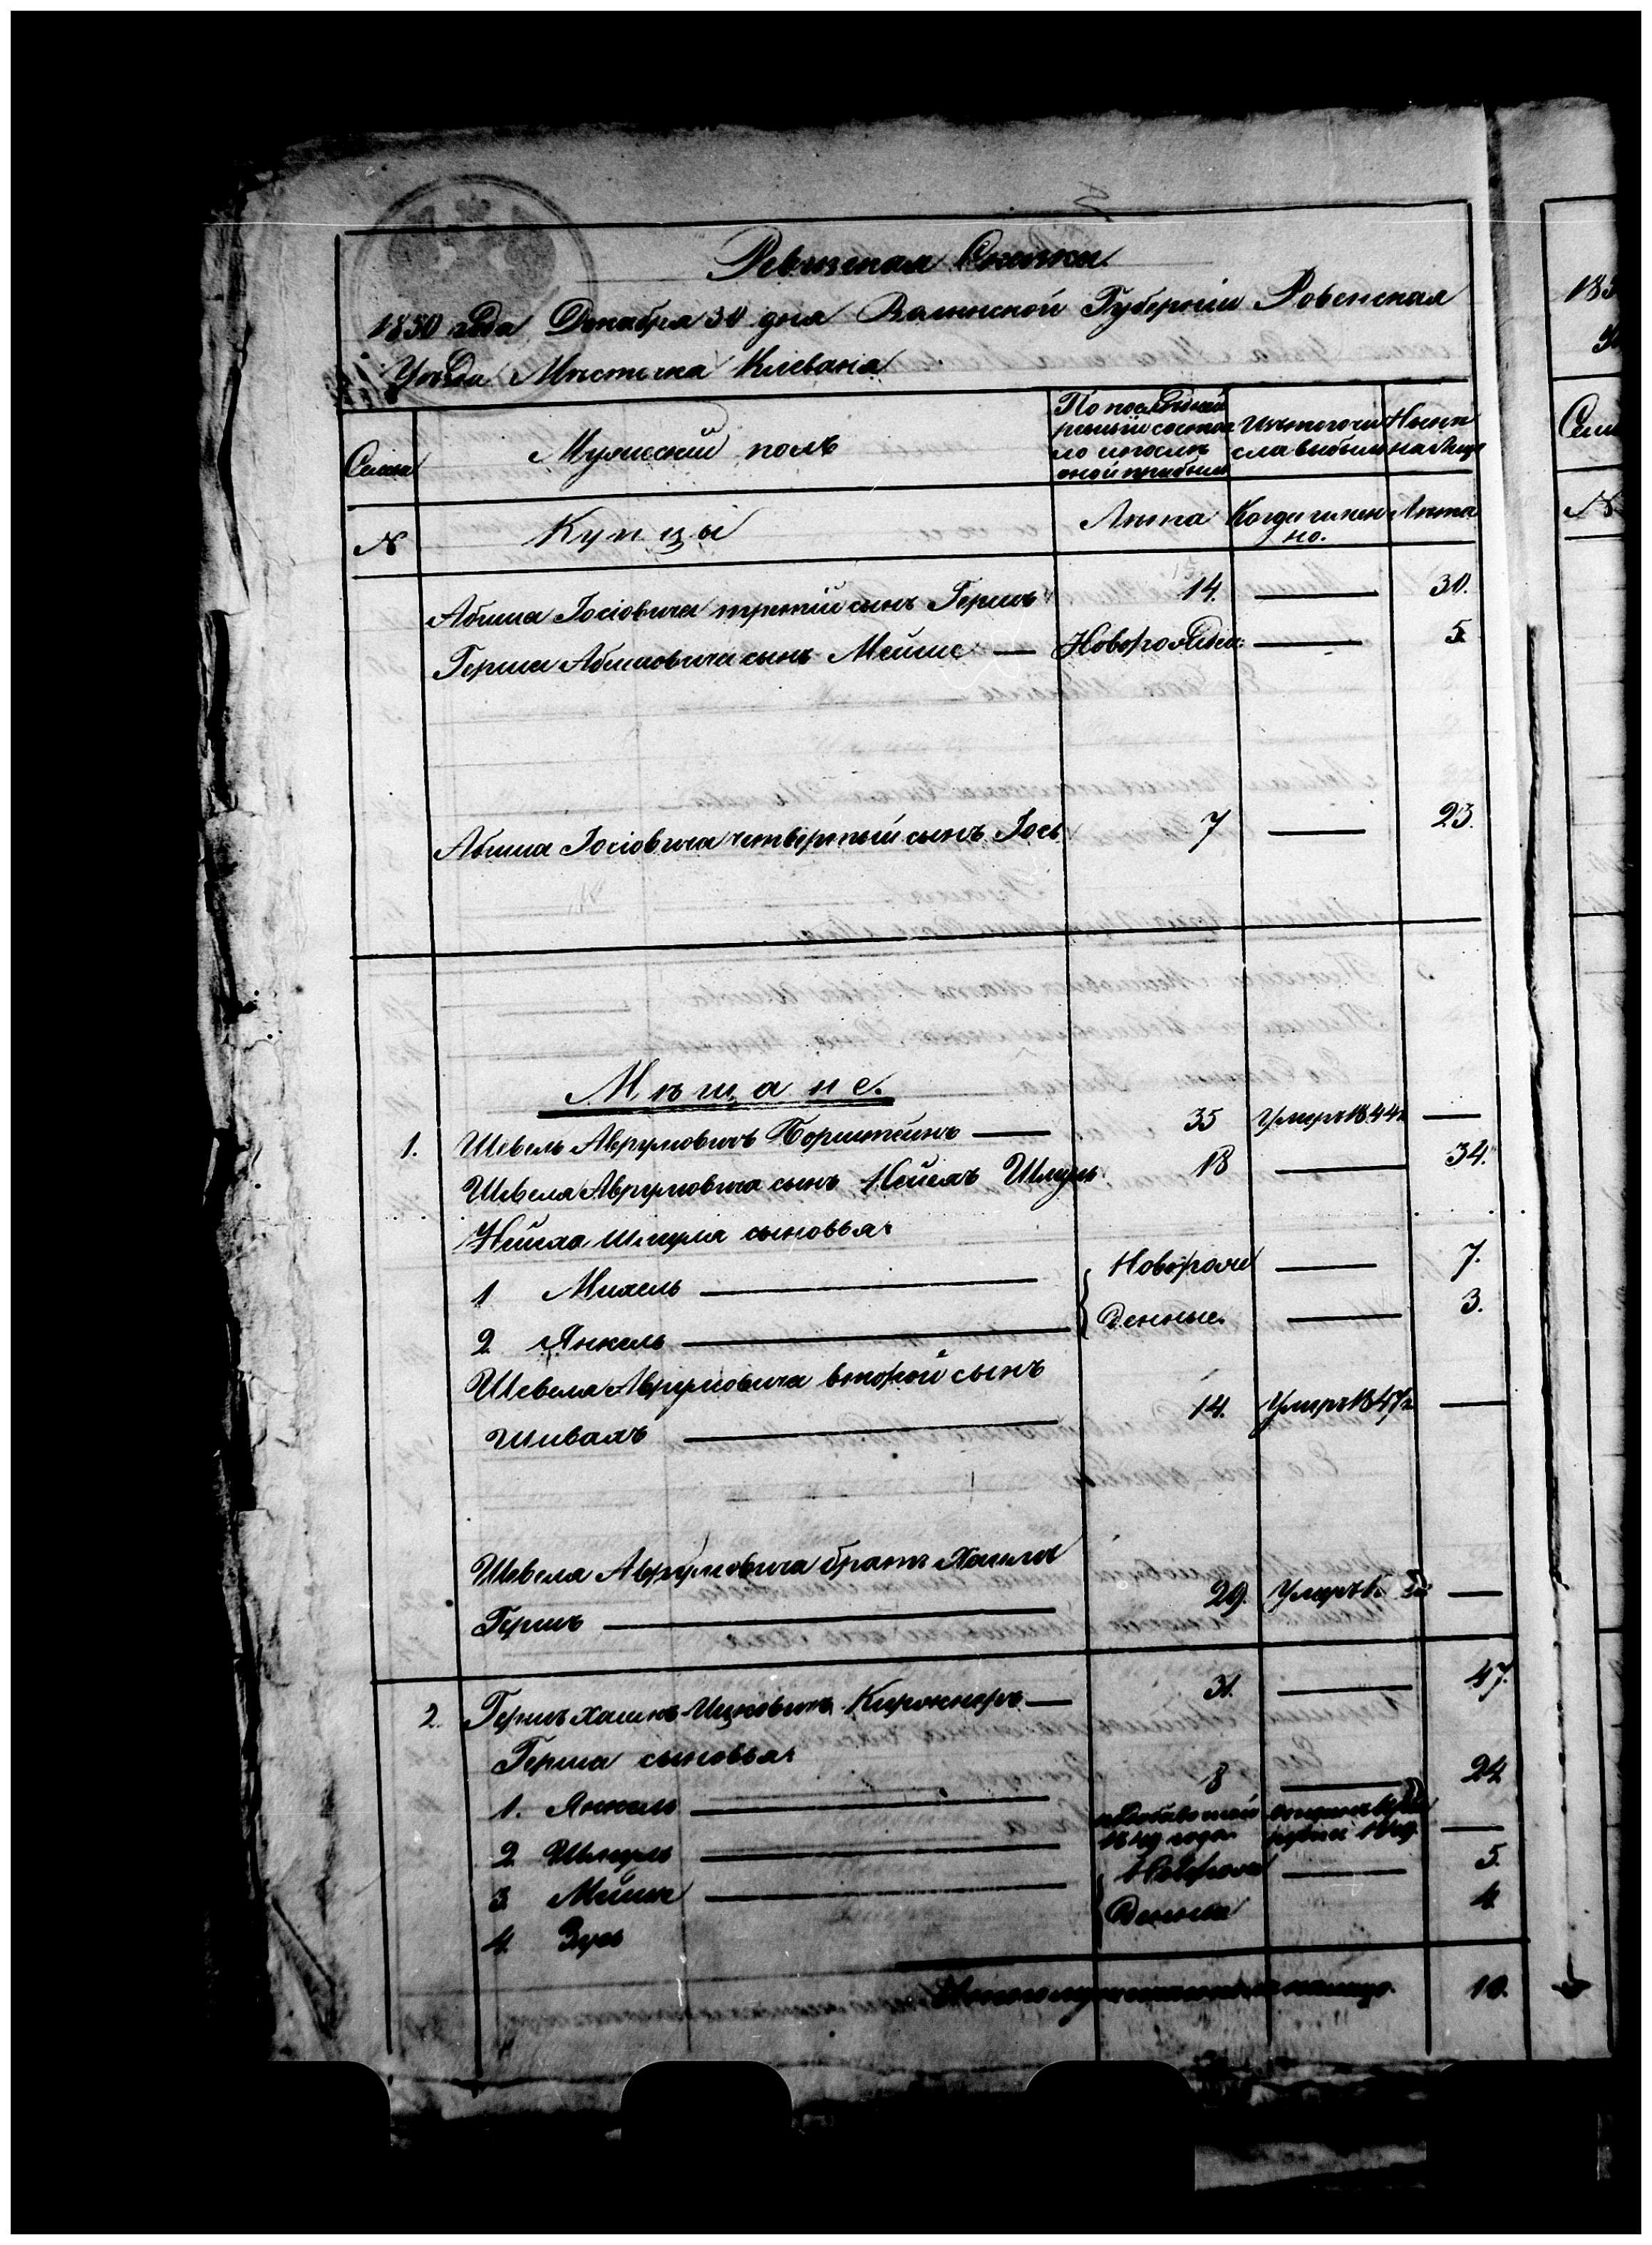 Ревизская Сказка.
1850 года Декабря 30 дня Волынской Губернии Ровенская
Уезда Местечка Клеваня
Семьи
Мужеский полъ
По последней ревизии состояло и после оной прибыло
Изъ того числа выбыло
Ныне на лицо
№
Купцы
Лета
Когда именно.
Лета
Абиша Іосіовича третій сынъ Гершъ 14. 30.
Герша Абишовича сынъ Мейше Новорожден: 5
Абиша Іосіовича четвертый сынъ Іось 7 23.
Мещане.
1. Шевель Аврумовичъ Борштейнъ 35 Умеръ 1844г
Шевеля Аврумовича сынъ Шмуль 18 34.
Шмуля сыновья:
1 Михель Новорож 7.
2 Янкель денные. 3.
Шевеля Аврумовича второй сынъ
14. Умеръ 1847г
Шевеля Аврумовича братъ
Гершъ 29. Умеръ
2. Гершъ Ицковичъ 31. 47.
Герша сыновья:
1. Янкель 8 24
2 Шмуль 1849 года. 1849.
3 Мейше Новорож 5.
4. Зусь денные 4.
на лицо. 10.
185
Семьи
№